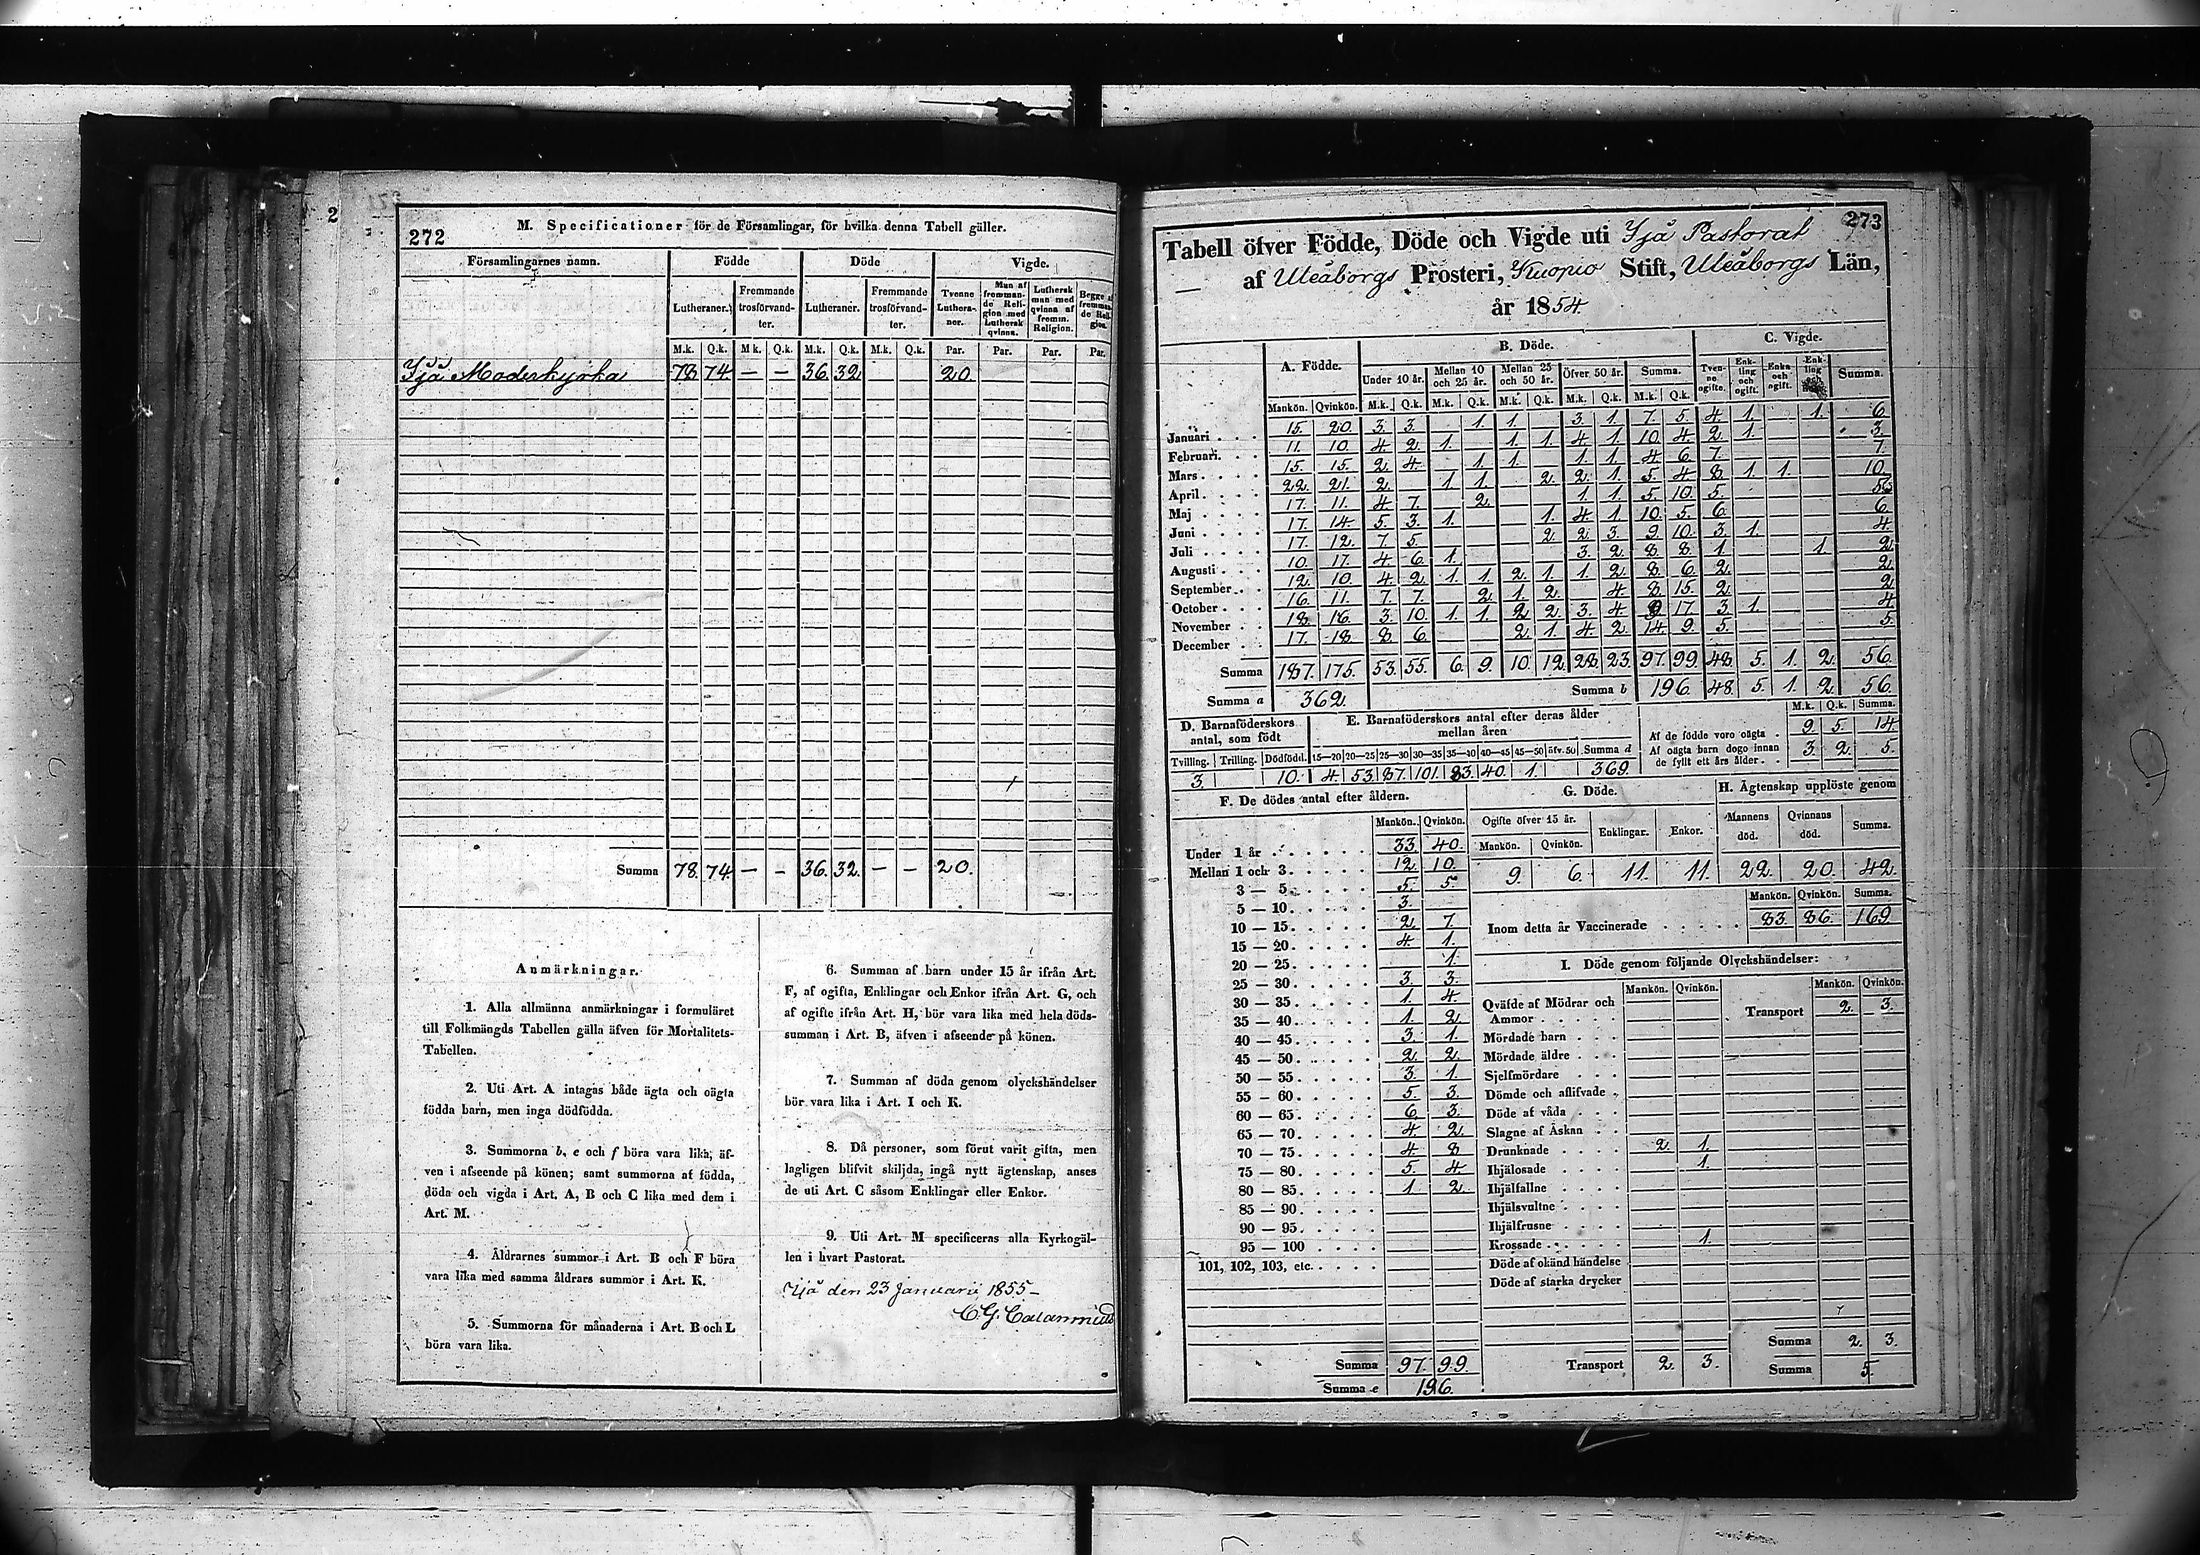 2
272
M. Specificationer för de Församlingar, för hvilka denna Tabell gäller.
Församlingarnes namn. Födde Döde Vigde.
Lutheraner. Fremmande trosförvandter. Lutheraner. Fremmande trosförvandter. Tvenne Lutheraner. Man af fremmande Religion med Luthersk qvinna. Luthersk man med qvinna af fremm. Religion.
M.k. Q.k. M k. Q.k. M.k. Q.k. M.k. Q.k. Par. Par. Par. Par.
Ijå Moderkyrka 78 74 — — 36. 32 20.
Summa 78. 74. — — 36. 32. — — 20.
Anmärkningar.
1. Alla allmänna anmärkningar i formuläret
till Folkmängds Tabellen gälla äfven för Mortalitets-
Tabellen.
2. Uti Art. A intagas både ägta och oägta
födda barn, men inga dödfödda.
3. Summorna b, e och f böra vara lika, äf-
ven i afseende på könen; samt summorna af födda,
döda och vigda i Art. A, B och C lika med dem i
Art. M.
4. Åldrarnes summor i Art. B och F böra
vara lika med samma åldrars summor i Art. K.
5. Summorna för månaderna i Art. B och L
böra vara lika.
6. Summan af barn under 15 år ifrån Art.
F, af ogifta, Enklingar och Enkor ifrån Art. G, och
af ogifte ifrån Art. H, bör vara lika med hela döds-
summan i Art. B, äfven i afseende på könen.
7. Summan af döda genom olyckshändelser
bör vara lika i Art. I och K.
8. Då personer, som förut varit gifta, men
lagligen blifvit skiljda, ingå nytt ägtenskap, anses
de uti Art. C såsom Enklingar eller Enkor.
9. Uti Art. M specificeras alla Kyrkogäl-
len i hvart Pastorat.
Ijå den 23 Januarii 1855 —
273
Tabell öfver Födde, Döde och Vigde uti Ijå Pastorat
af Uleåborgs Prosteri, Kuopio Stift, Uleåborgs Län,
år 1854.
A. Födde. B. Döde. C. Vigde.
Under 10 år. Mellan 10 och 25 år. Mellan 25 och 50 år. Öfver 50 år. Summa. Tvenne ogifte. Enkling och ogift. Enka och ogift. Summa.
Mankön. Qvinkön. M.k. Q.k. M.k. Q.k. M.k. Q.k. M.k. Q.k. M.k. Q.k.
Januari 15. 20. 3. 3. 1. 1. 3. 1. 7. 5. 4. 1. 1. 6
Februari. 11. 10. 4. 2. 1. 1. 1. 4. 1. 10. 4. 2. 1. 3.
Mars 15. 15. 2. 4. 1. 1. 1. 1. 4. 6. 7. 7.
April 22. 21. 2. 1. 1. 2. 2. 1. 5. 4. 8. 1. 1. 10.
Maj 17. 11. 4. 7. 2. 1. 1. 5. 10. 5.
Juni 17. 14. 5. 3. 1. 1. 4. 1. 10. 5. 6. 6.
Juli 17. 12. 7. 5. 2. 2. 3. 9. 10. 3. 1. 4.
Augusti 10. 17. 4. 6. 1. 3. 2. 8. 8. 1. 1. 2.
September 12. 10. 4. 2. 1. 1. 2. 1. 1. 2. 8. 6. 2. 2.
October 16. 11. 7. 7. 2. 1. 2. 4. 8. 15. 2. 2.
November 18. 16. 3. 10. 1. 1. 2. 2. 3. 4. 9. 17. 3. 1. 4.
December 17. 18. 8. 6. 2. 1. 4. 2. 14. 9. 5. 5.
Summa 187. 175. 53. 55. 6. 9. 10. 12. 28. 23. 97. 99. 48. 5. 1. 2. 56.
Summa a 362. Summa b 196. 48. 5. 1. 2. 56.
D. Barnaföderskors antal, som födt
E. Barnaföderskors antal efter deras ålder mellan åren
Tvilling. Trilling. Dödfödd. 15—20 20—25 25—30 30—35 35—40 40—45 45—50 öfv. 50 Summa d
3. 10. 4. 53. 87. 101. 83. 40. 1. 369.
M.k. Q.k. Summa.
Af de födde voro oägta 9. 5. 14.
Af oägta barn dogo innan de fyllt ett års ålder 3. 2. 5.
F. De dödes antal efter åldern.
Mankön. Qvinkön.
Under 1 år 33. 40.
Mellan 1 och 3. 12. 10.
3 — 5. 5. 5.
5 — 10. 3.
10 — 15. 2. 7.
15 — 20. 4. 1.
20 — 25. 1.
25 — 30. 3. 3.
30 — 35. 1. 4.
35 — 40. 1. 2.
40 — 45. 3. 1.
45 — 50. 2. 2.
50 — 55. 3. 1.
55 — 60. 5. 3.
60 — 65. 6. 3.
65 — 70. 4. 2.
70 — 75. 4. 8
75 — 80. 5. 4.
80 — 85. 1 2.
85 — 90.
90 — 95.
95 — 100
101, 102, 103, etc.
Summa 97. 99.
Summa e 196.
G. Döde.
Ogifte öfver 15 år. Enklingar. Enkor.
Mankön. Qvinkön.
9. 6. 11. 11.
H. Ägtenskap upplöste genom
Mannens död. Qvinnans död. Summa.
22. 20. 42.
Mankön. Qvinkön. Summa.
Inom detta år Vaccinerade 83. 86. 169.
I. Döde genom följande Olyckshändelser:
Mankön. Qvinkön. Mankön. Qvinkön.
Qväfde af Mödrar och Ammor Transport 2. 3.
Mördade barn
Mördade äldre
Sjelfmördare
Dömde och aflifvade
Döde af våda
Slagne af Åskan
Drunknade 2. 1.
Ihjälosade 1.
Ihjälfallne
Ihjälsvultne
Ihjälfrusne
Krossade 1.
Döde af okänd händelse
Döde af starka drycker
Summa 2. 3.
Transport 2. 3. Summa 5.